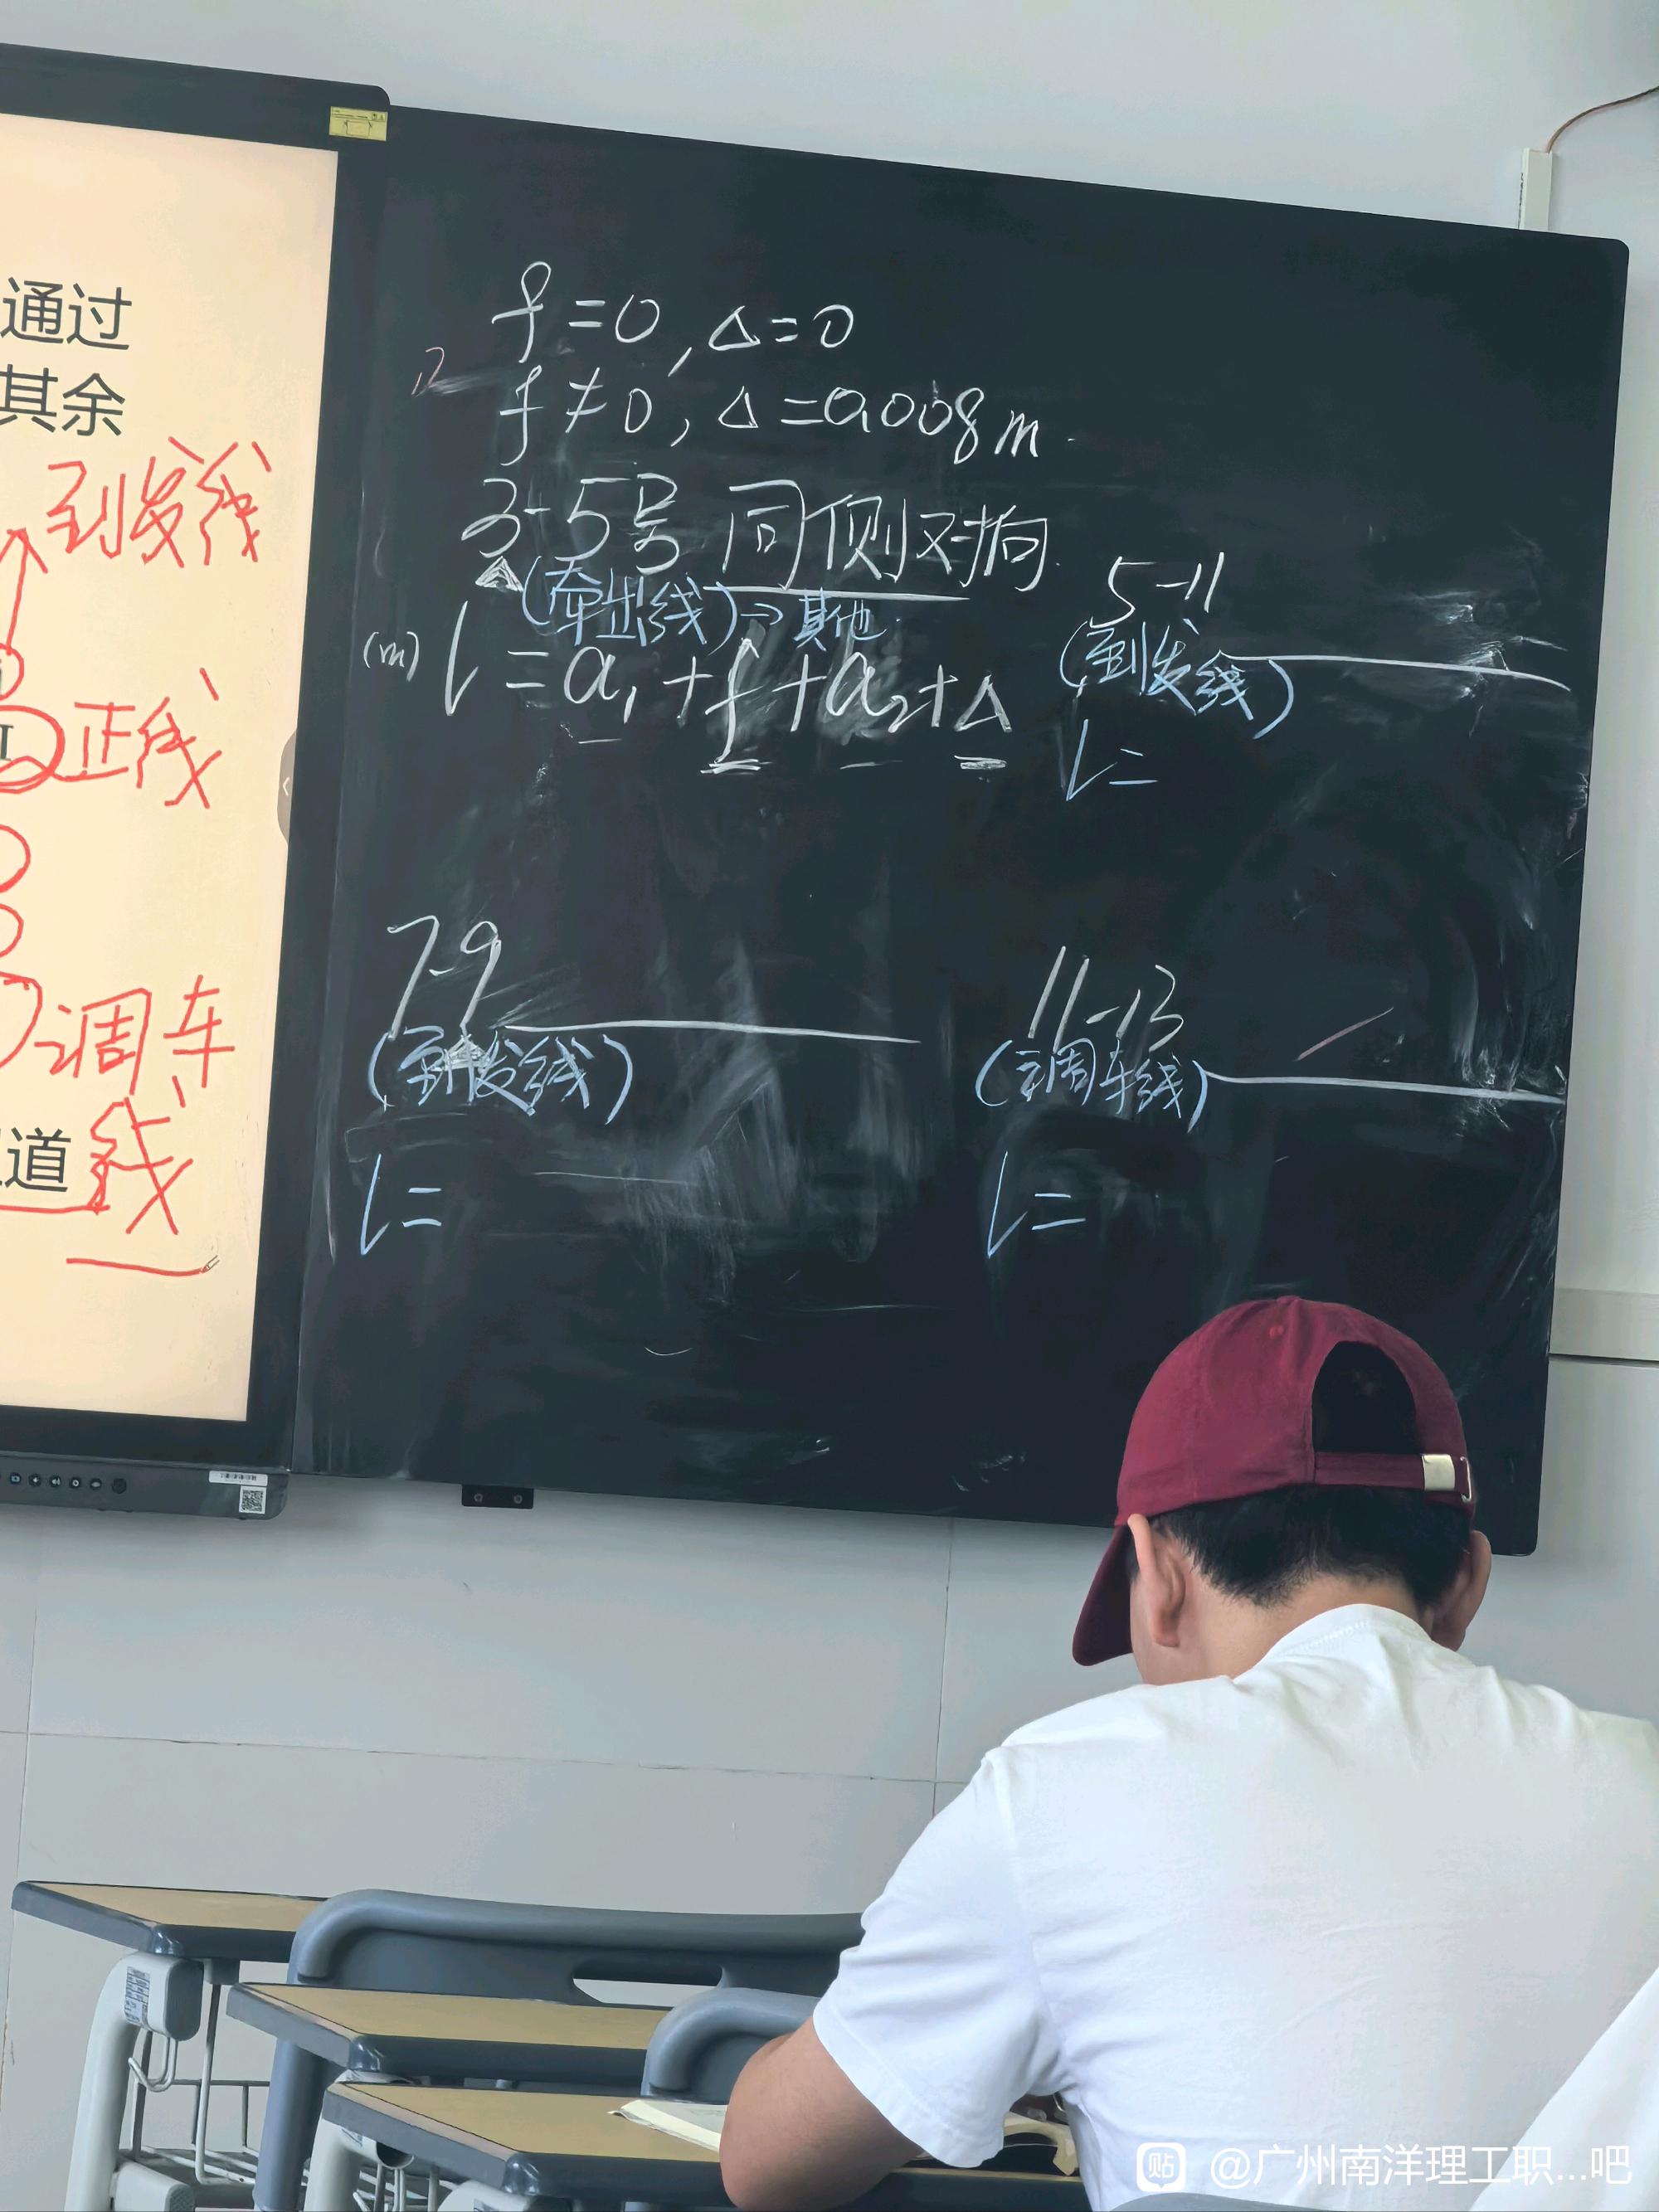 通过
其余
到发线
正线
调车
道 线
f=0, Δ=0
f≠0, Δ=0.008m
3-5号 同侧对向
(牵出线)→其他
(m) L=a₁+f+a₂+Δ
5-11
(到发线)
L=
7-9
(到发线)
L=
11-13
(调车线)
L=
贴 @广州南洋理工职...吧